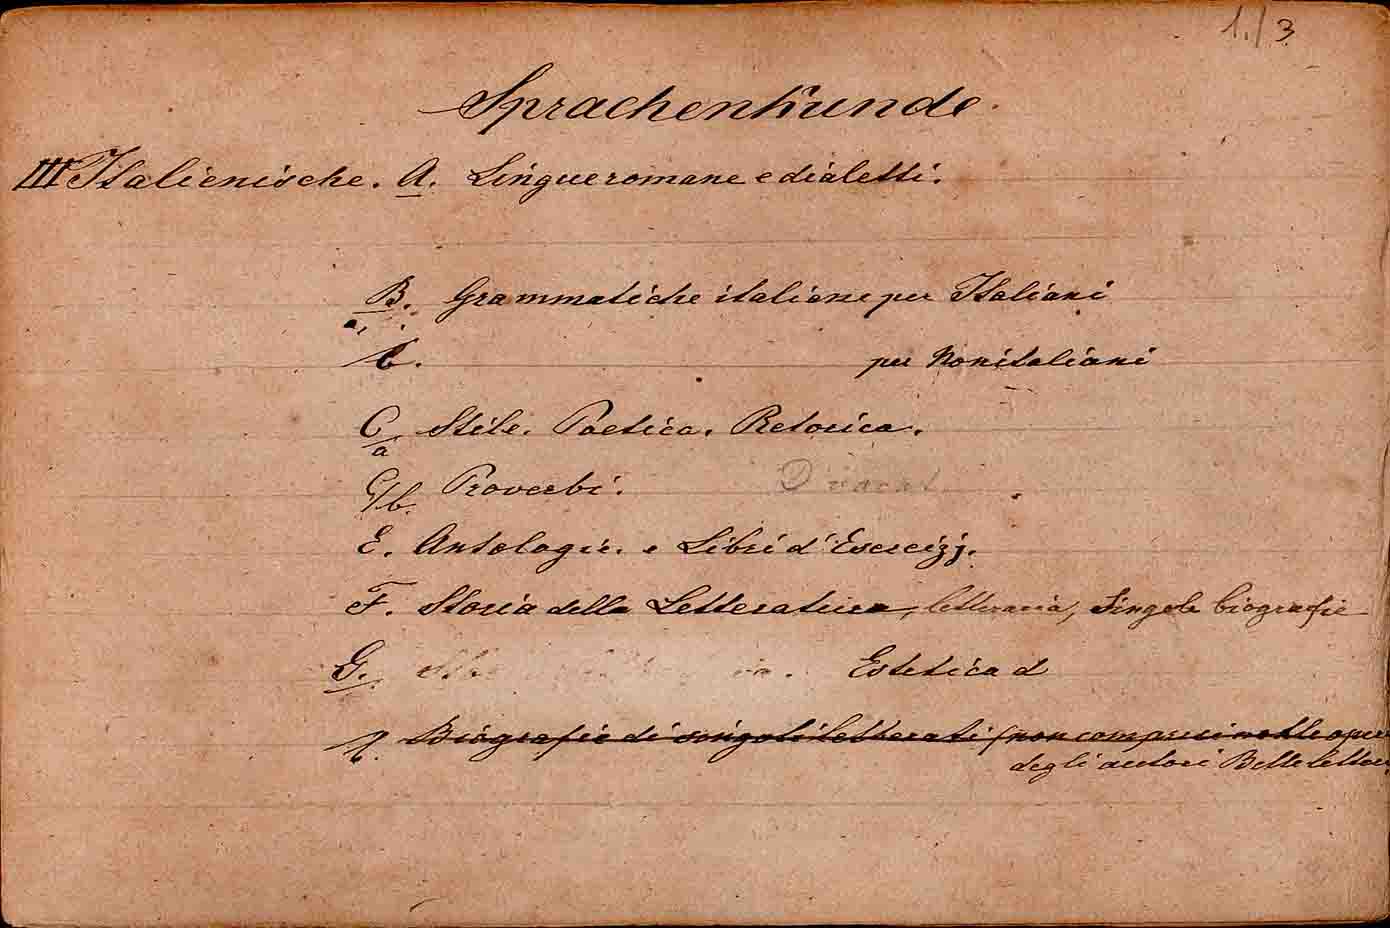 1./3
Sprachenkunde.
III Italienische. A. Lingue romane e dialetti.
B. Grammatiche italiane per Italiani
a.
b. per Nonitaliani
C Stile. Poetica. Retorica.
a
C/b. Proverbi. D vacat
E. Antologie e Libri d'Esercizj.
F. Storia della Letteratura, letteraria, Singole biografie
G. Estetica d
Biografie di singoli letterati (non compresi nelle opere
degli autori Belle lettere